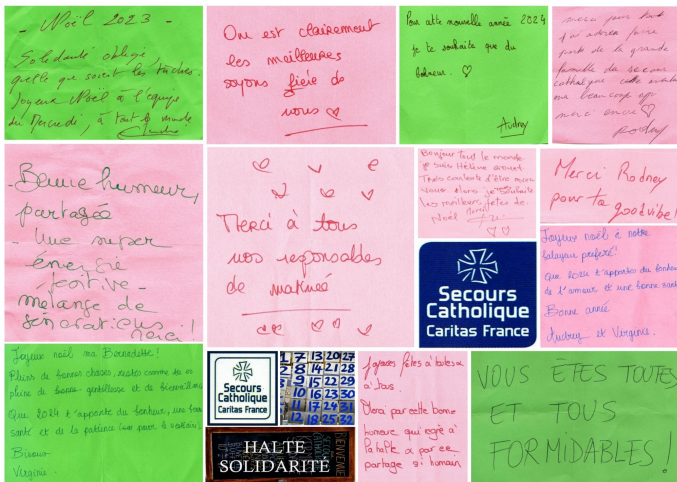 - Noël 2023 -
Solidarité oblige
quelle que soient les tâches.
Joyeux Noël à l'équipe
du Mercredi, à tout le monde
On est clairement
les meilleures
soyons fière de
nous ♡
Pour cette nouvelle année 2024
je te souhaite que du
bohneur. ♡
Audrey
merci pour tout
j'ai adorer faire
partie de la grande
famille du secours
catholique cette
ma beaucoup
merci encore ♡
Rodney
- Beuue humeur,
partagée
- Une super
énergie
positive -
mélange de
générations
merci!
Merci à tous
nos responsables
de matinée
Bonjour tout le monde
je suis Hélène
Très contente d'être
vous Alors je souhaite
les meilleurs fêtes de
Noël
Merci Rodney
pour ta goodvibe!
Secours
Catholique
Caritas France
Joyeux noël à notre
salayeur préféré!
Que 2024 t'apporte du bonheur
de l'amour et une bonne santé
Bonne année
Audrey et Virginie.
Joyeux noël ma Bernadette!
Pleins de bonnes choses, restes comme tu es
pleine de bonne gentillesse et de bienveillance
Que 2024 t'apporte du bonheur, une bonne
santé et de la patience
Bisous
Virginie.
Secours
Catholique
Caritas France
1 7 13 20 27
2 8 14 21 28
9 15 22 29
10 16 23 30
11 17 24 31
12 18 25 32
HALTE
SOLIDARITÉ
BIENVENUE
Joyeuses fêtes à toutes &
à tous.
Merci par cette bonne
humeur qui règne à
la halte & par ce
partage si humain
VOUS ÊTES TOUTES
ET TOUS
FORMIDABLES !